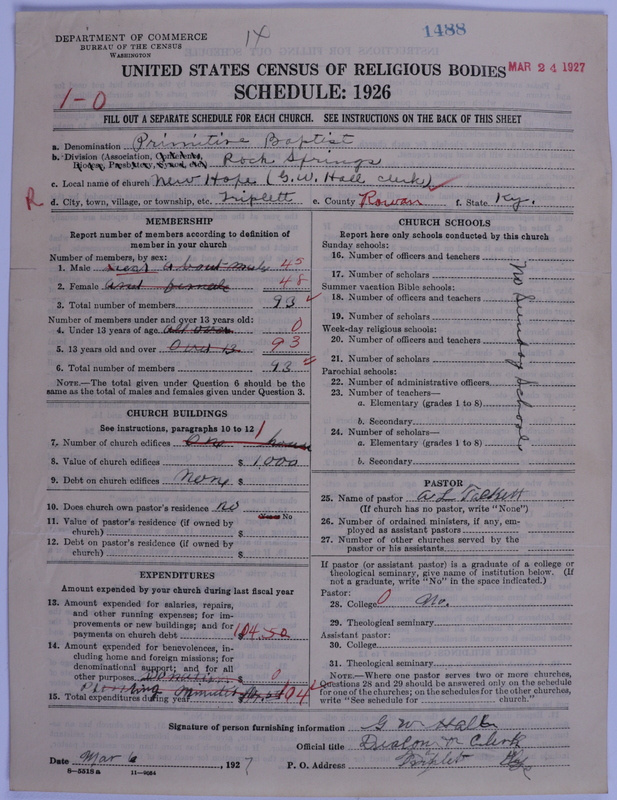 DEPARTMENT OF COMMERCE
BUREAU OF THE CENSUS
WASHINGTON
14
1488
UNITED STATES CENSUS OF RELIGIOUS BODIES
MAR 24 1927
SCHEDULE: 1926
1-0
FILL OUT A SEPARATE SCHEDULE FOR EACH CHURCH. SEE INSTRUCTIONS ON THE BACK OF THIS SHEET
a. Denomination Primitive Baptist
b. Division (Association, Conference, Diocese, Presbytery, Synod, etc.) Rock Springs
c. Local name of church New Hope (G.W. Hall clerk)
R d. City, town, village, or township, etc. Triplett e. County Rowan f. State Ky.
MEMBERSHIP
Report number of members according to definition of
member in your church
Number of members, by sex:
1. Male about 45
2. Female and female 48
3. Total number of members 93
Number of members under and over 13 years old:
4. Under 13 years of age all over 0
5. 13 years old and over Over 13 93
6. Total number of members 93
NOTE.—The total given under Question 6 should be the
same as the total of males and females given under Question 3.
CHURCH BUILDINGS
See instructions, paragraphs 10 to 12
7. Number of church edifices One house 1
8. Value of church edifices $ 1000
9. Debt on church edifices None $
10. Does church own pastor's residence no
Yes or No
11. Value of pastor's residence (if owned by
church) $
12. Debt on pastor's residence (if owned by
church) $
EXPENDITURES
Amount expended by your church during last fiscal year
13. Amount expended for salaries, repairs,
and other running expenses; for im-
provements or new buildings; and for
payments on church debt $ 104.50
14. Amount expended for benevolences, in-
cluding home and foreign missions; for
denominational support; and for all
other purposes Donation $ 0
15. Total expenditures during year 104
CHURCH SCHOOLS
Report here only schools conducted by this church
Sunday schools:
16. Number of officers and teachers
17. Number of scholars
Summer vacation Bible schools:
18. Number of officers and teachers
19. Number of scholars
Week-day religious schools:
20. Number of officers and teachers
21. Number of scholars
Parochial schools:
22. Number of administrative officers
23. Number of teachers—
a. Elementary (grades 1 to 8)
b. Secondary
24. Number of scholars—
a. Elementary (grades 1 to 8)
b. Secondary
No Sunday Schools
PASTOR
25. Name of pastor A L Tackett
(If church has no pastor, write "None")
26. Number of ordained ministers, if any, em-
ployed as assistant pastors
27. Number of other churches served by the
pastor or his assistants
If pastor (or assistant pastor) is a graduate of a college or
theological seminary, give name of institution below. (If
not a graduate, write "No" in the space indicated.)
Pastor:
28. College 0 No.
29. Theological seminary
Assistant pastor:
30. College
31. Theological seminary
NOTE.—Where one pastor serves two or more churches,
Questions 28 and 29 should be answered only on the schedule
for one of the churches; on the schedules for the other churches,
write "See schedule for church."
Signature of person furnishing information G W Hall
Official title Diacon or Clerk
Date Mar 6, 1927 P. O. Address Triplet Ky
8-5518 a 11-9054